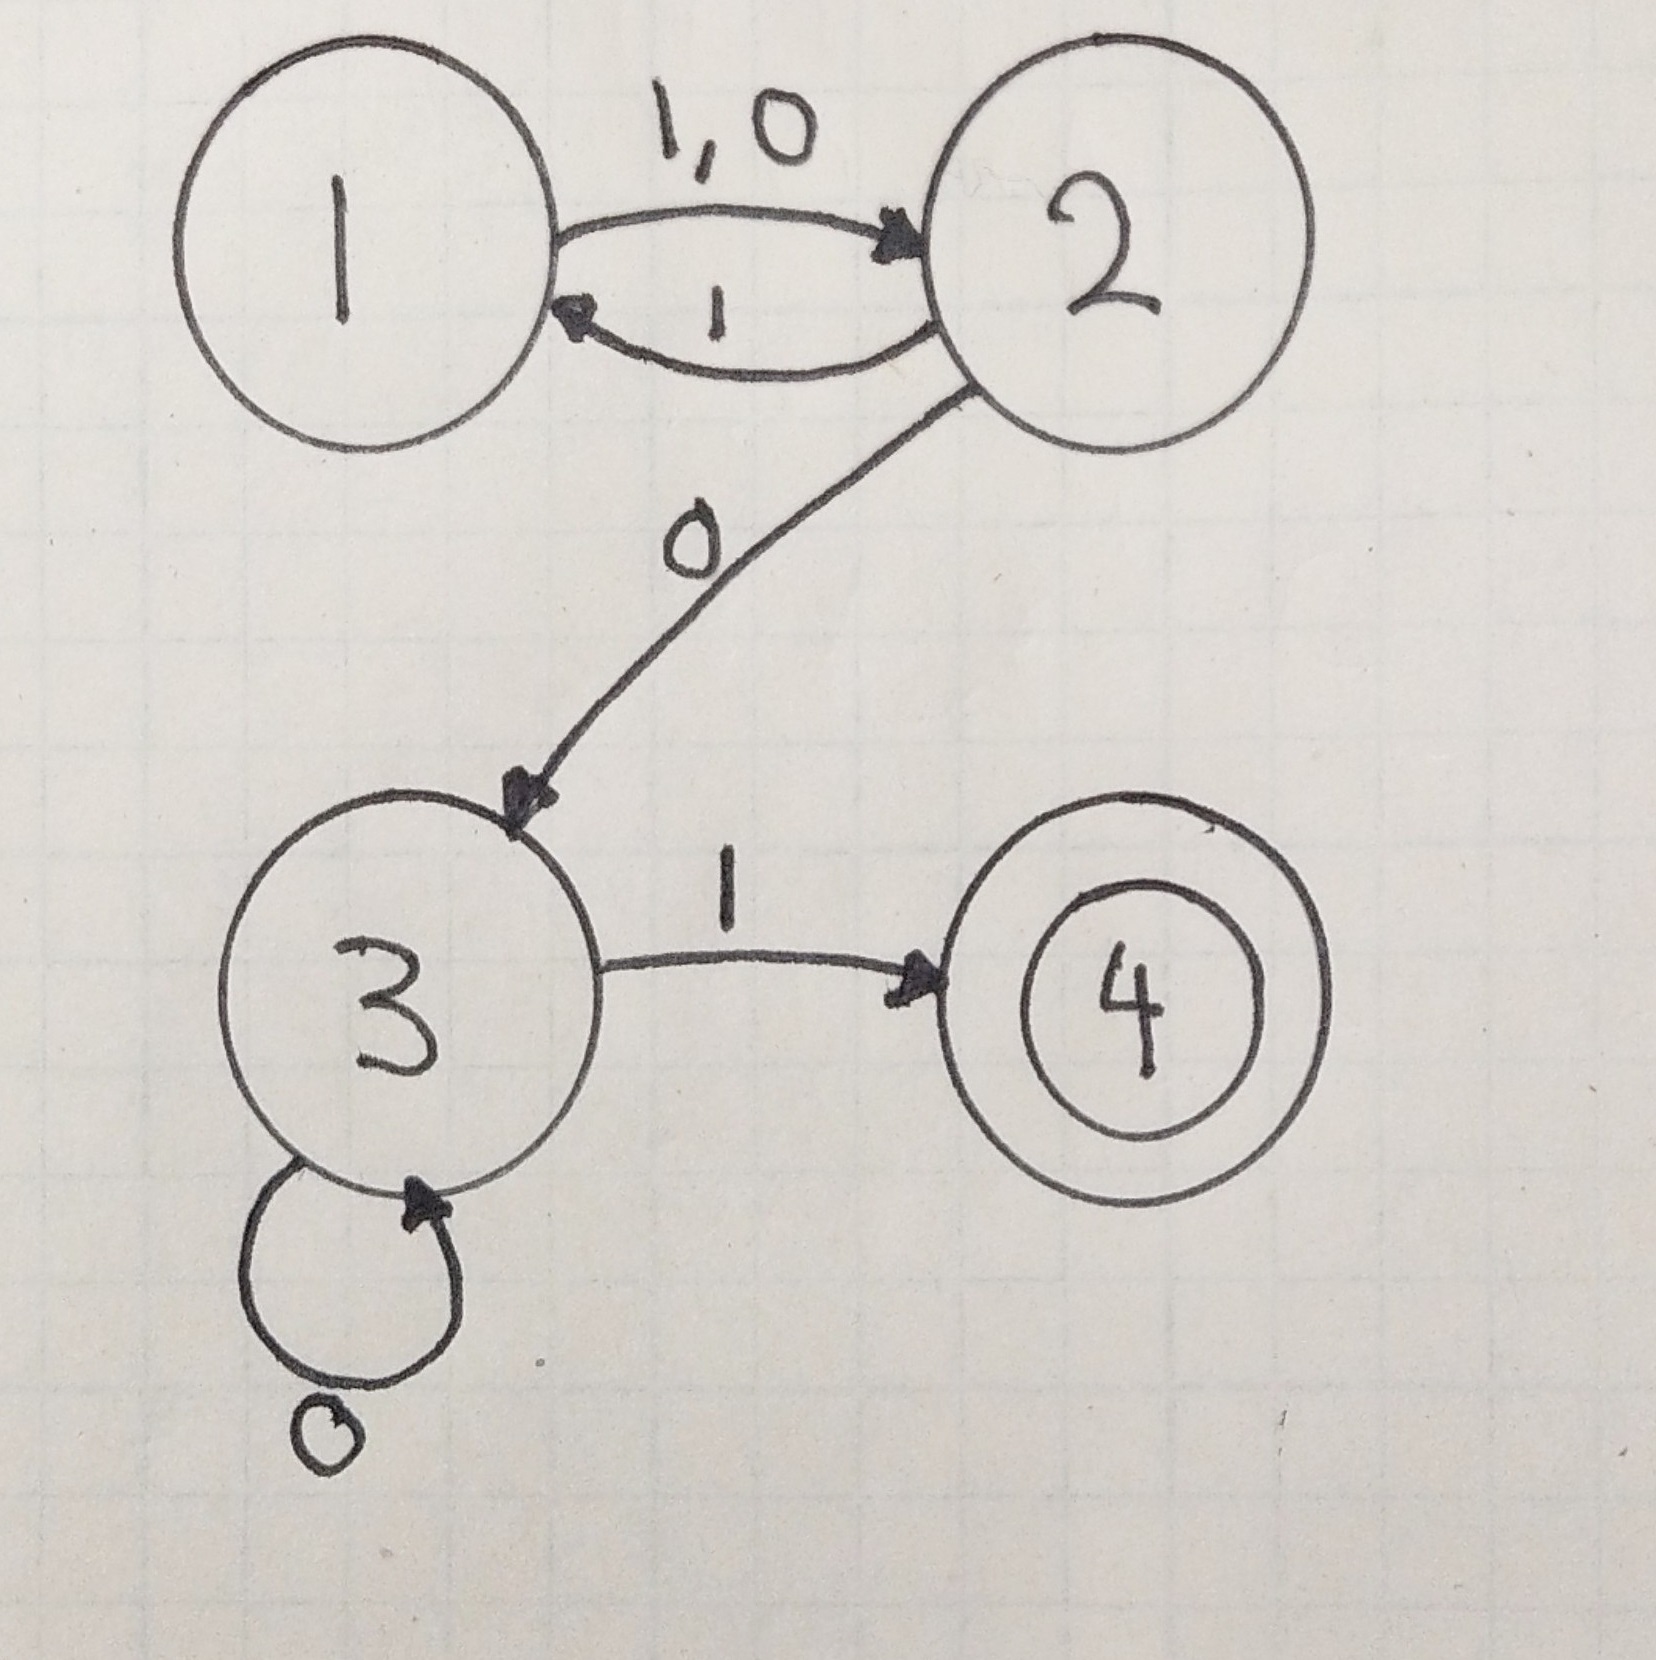 1,0
1
2
1
0
1
3
4
0